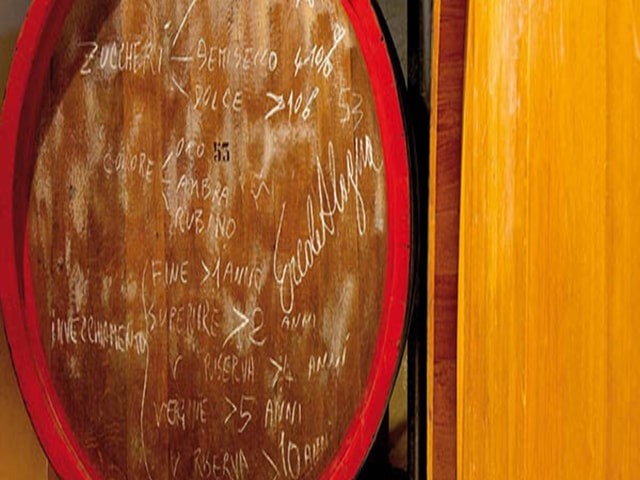 ZUCCHERI SEMISECCO 4-10%
DOLCE >10%
53
COLORE ORO 53
AMBRA
RUBINO
FINE >1 ANNO
INVECCHIAMENTO SUPERIORE >2 ANNI
V RISERVA >4 ANNI
VERGINE >5 ANNI
V RISERVA >10 ANNI